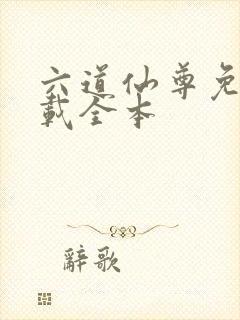 六道仙尊免
載全本
辭歌